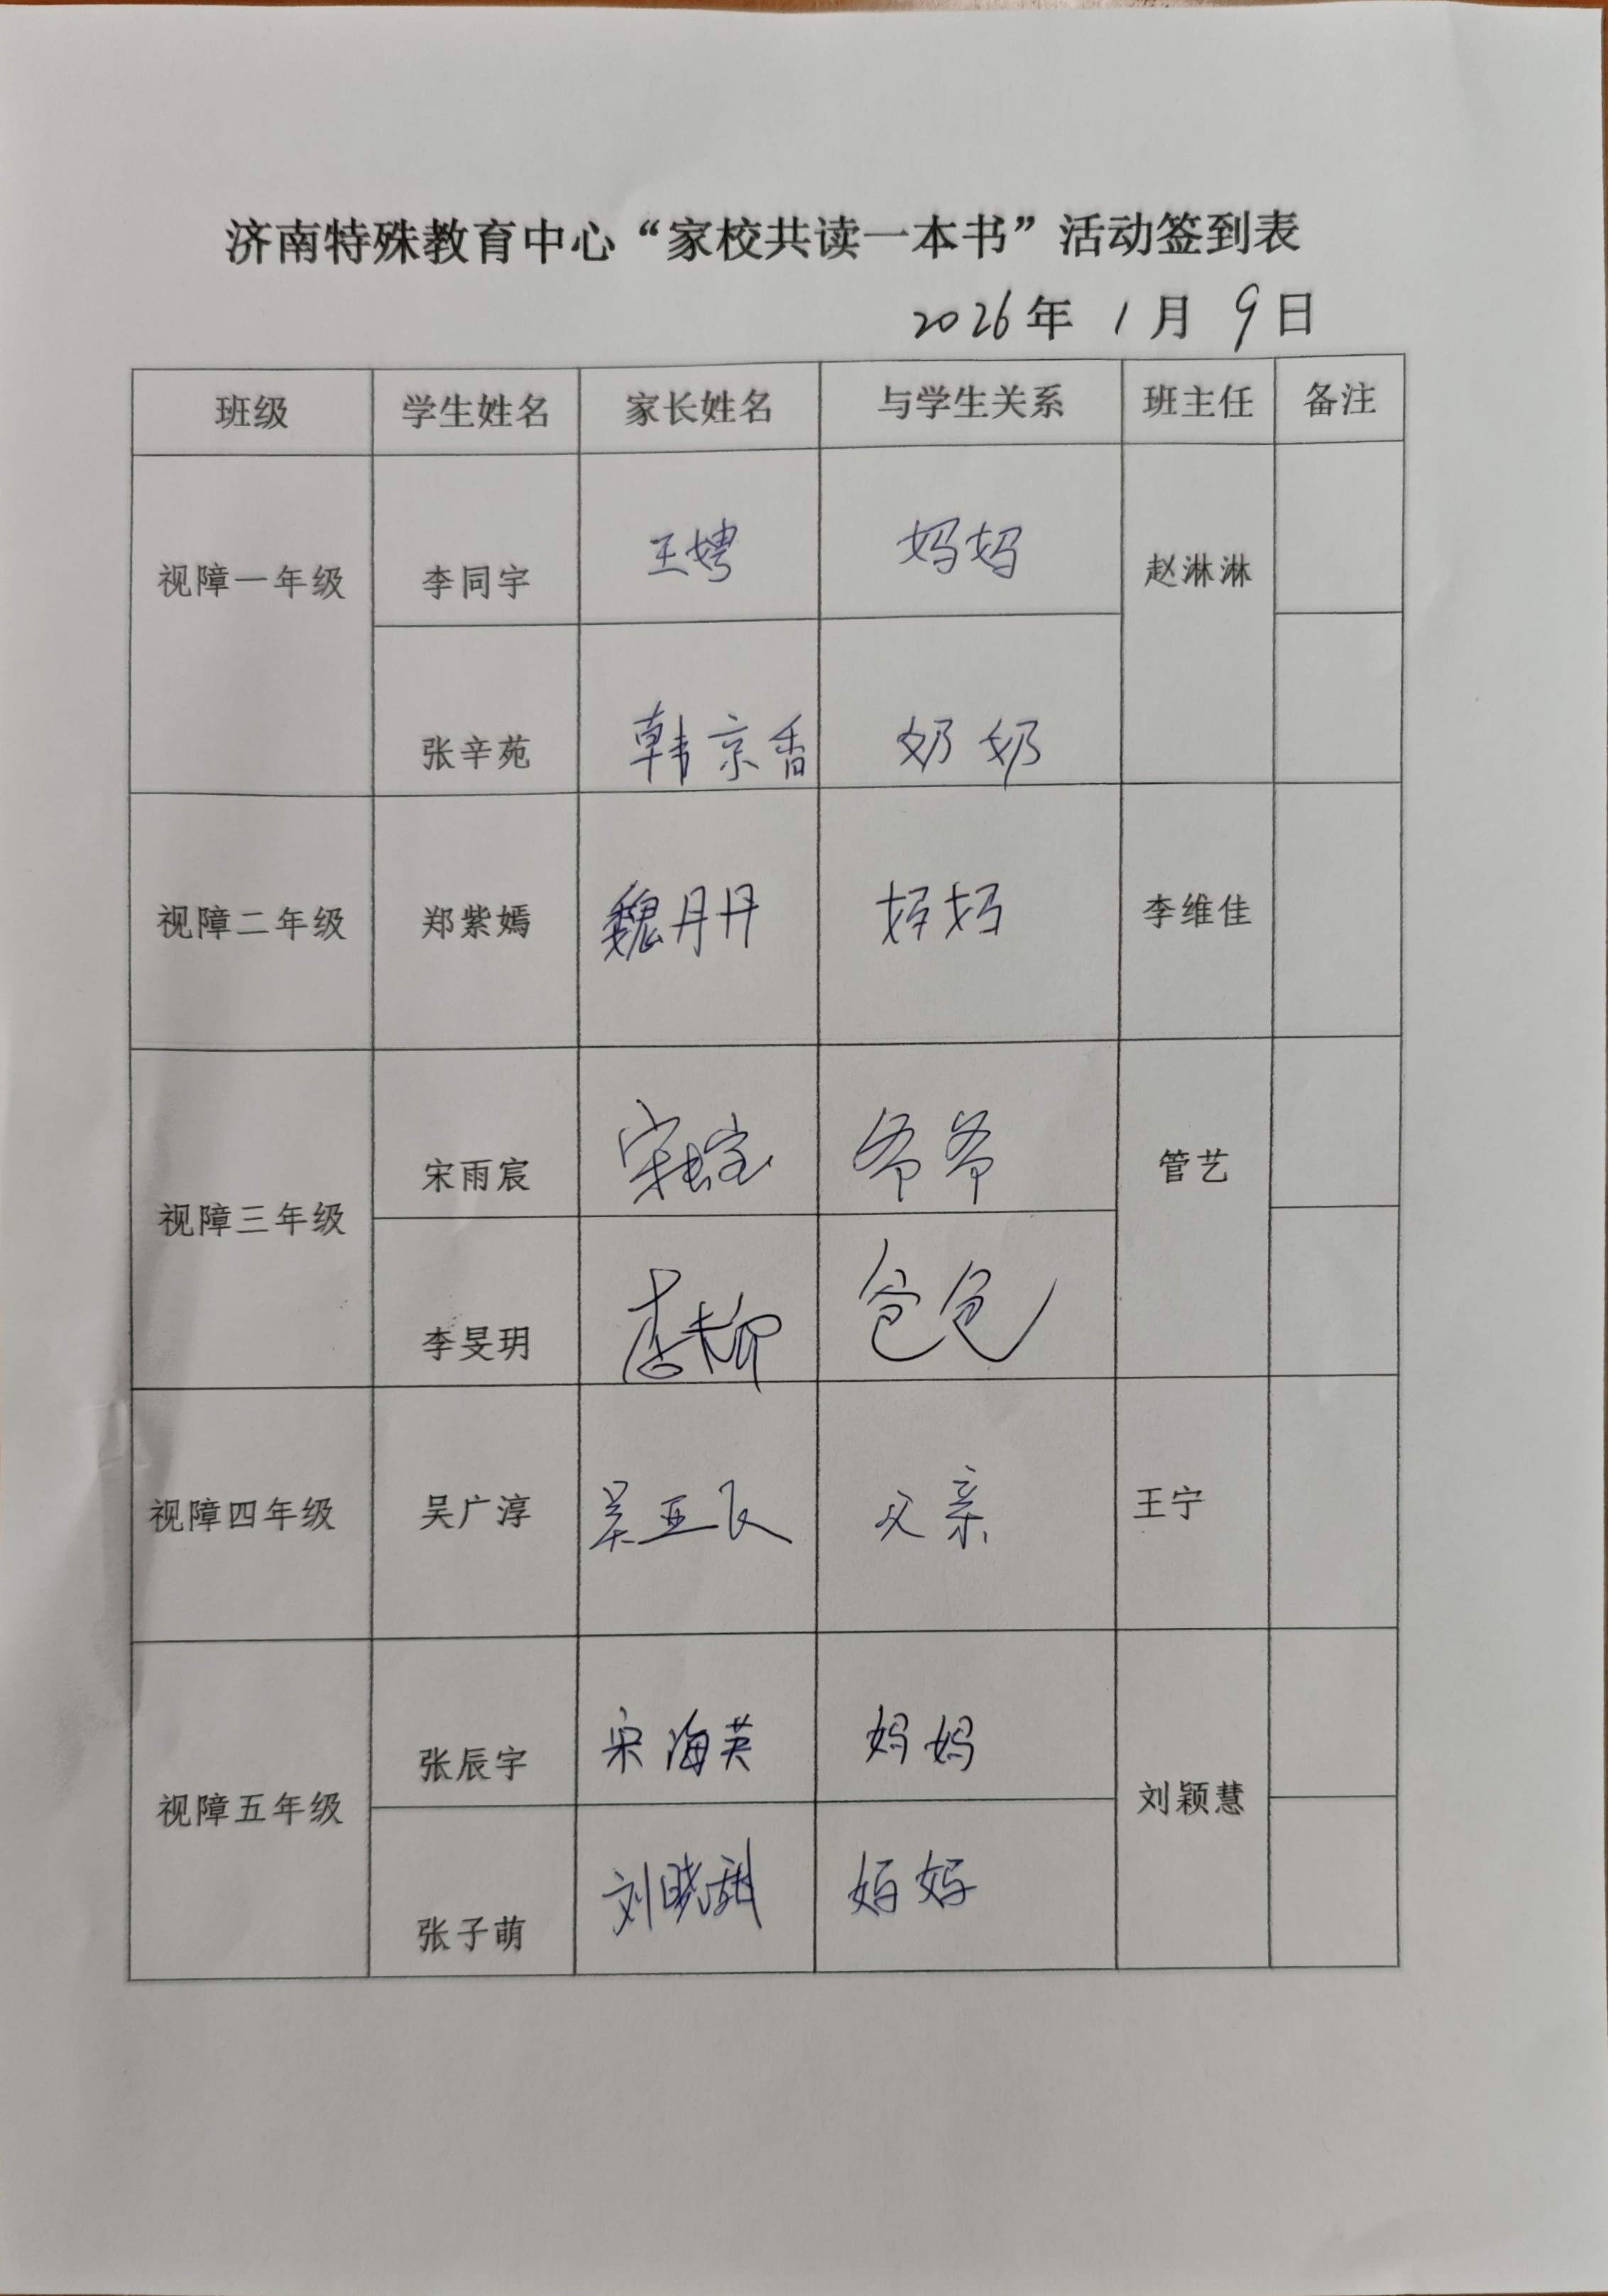 济南特殊教育中心“家校共读一本书”活动签到表
2026年 1月 9日
班级 学生姓名 家长姓名 与学生关系 班主任 备注
视障一年级 李同宇 王娉 妈妈 赵淋淋
张辛苑 韩京香 奶奶
视障二年级 郑紫嫣 魏丹丹 妈妈 李维佳
视障三年级 宋雨宸 宋 爷爷 管艺
李旻玥 李 爸爸
视障四年级 吴广淳 吴亚飞 父亲 王宁
视障五年级 张辰宇 宋海英 妈妈 刘颖慧
张子萌 刘晓甜 妈妈